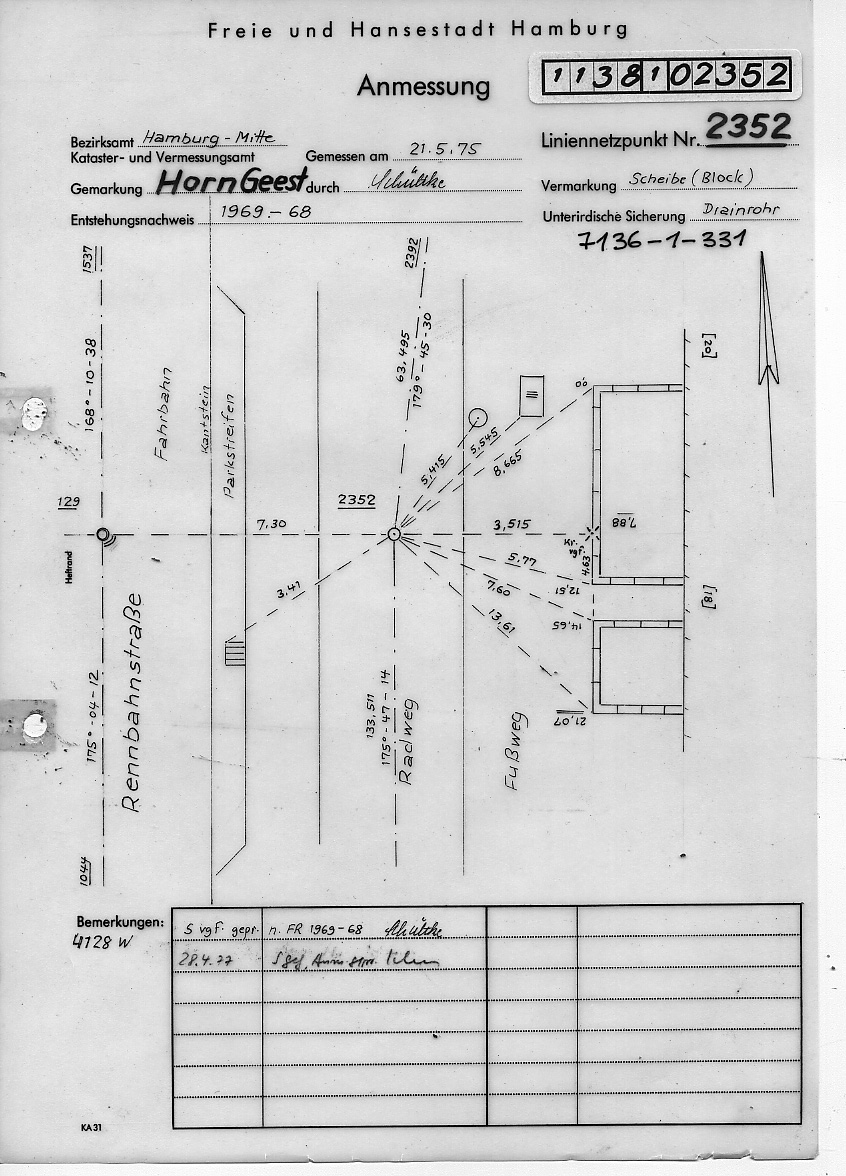 Freie und Hansestadt Hamburg
Anmessung
1138102352
Bezirksamt Hamburg-Mitte
Kataster- und Vermessungsamt
Gemessen am 21.5.75
Liniennetzpunkt Nr. 2352
Gemarkung Horn Geest durch Schültke
Vermarkung Scheibe (Block)
Entstehungsnachweis 1969-68
Unterirdische Sicherung Drainrohr
7136-1-331
1537
2392
168°-10-38
63,495
179°-45-30
[20]
Fahrbahn
Kantstein
Parkstreifen
0,0
5,415
5,545
8,665
129
2352
7,30
3,515
7,88
Kr.
vgf.
4,63
Heftrand
5,77
12,51
3,41
7,60
14,65
[18]
13,61
21,07
Rennbahnstraße
175°-04-12
133,511
175°-47-14
Radweg
Fußweg
1044
Bemerkungen:
4128 W
S vgf. gepr. n. FR 1969-68 Schültke
28.4.77
KA31